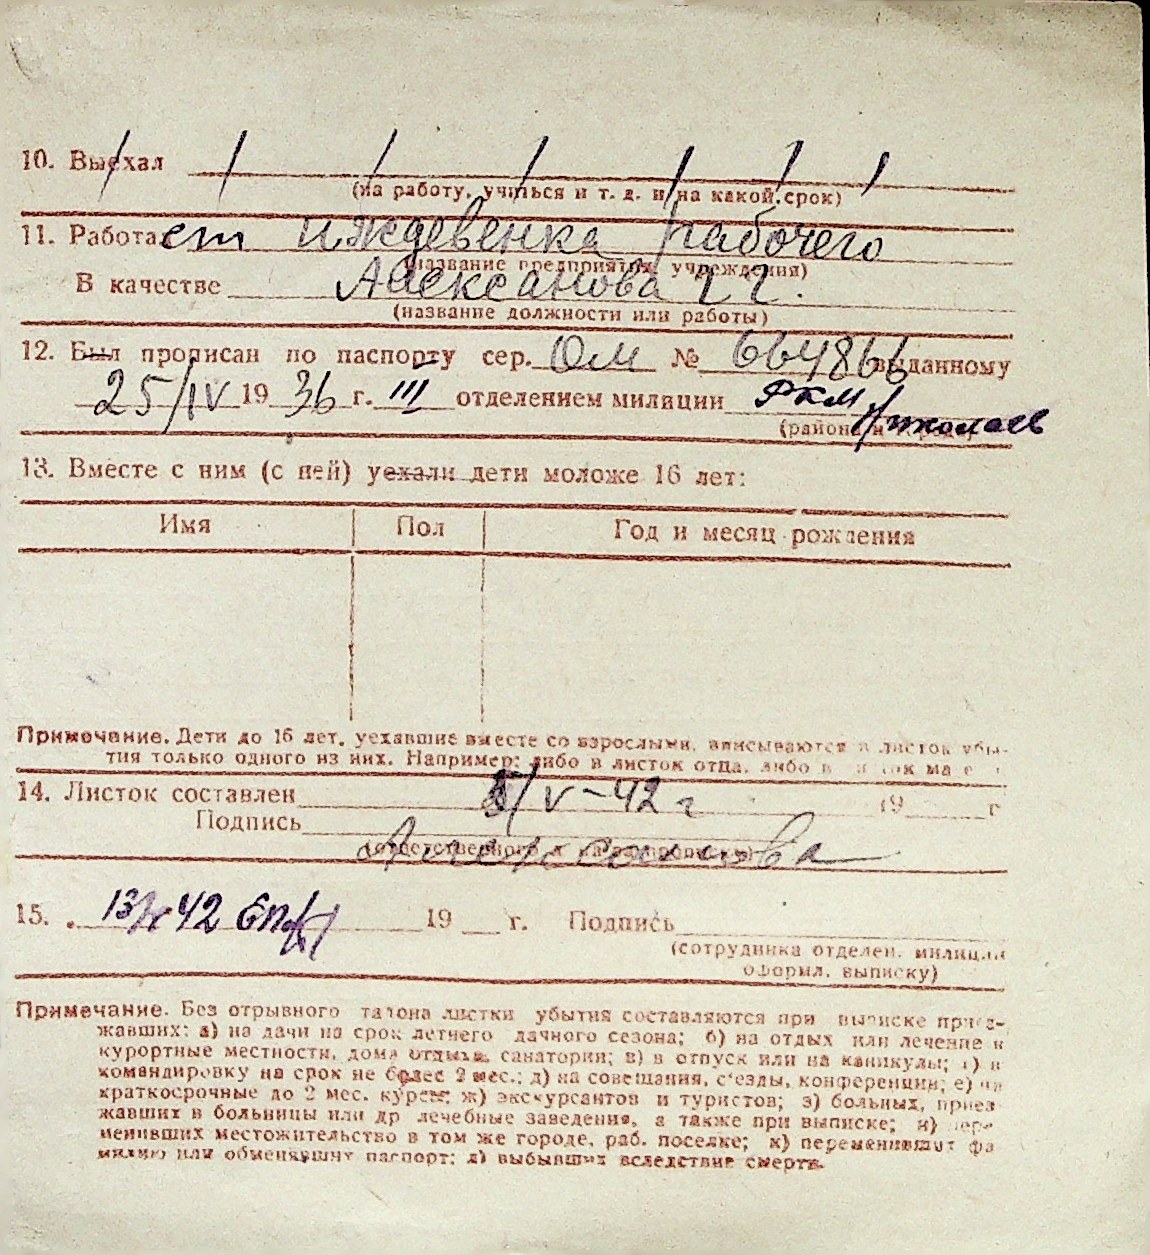 10. Выехал
(на работу, учиться и т. д. и на какой срок)
11. Работает иждевенка рабочего
(название предприятия, учреждения)
В качестве Алексанова
(название должности или работы)
12. Был прописан по паспорту сер. ОМ № 664866 выданному
25/IV 1936 г. III отделением милиции РКМ Николаев
(района и города)
13. Вместе с ним (с ней) уехали дети моложе 16 лет:
Имя Пол Год и месяц рождения
Примечание. Дети до 16 лет, уехавшие вместе со взрослыми, вписываются в листок убы-
тия только одного из них. Например: либо в листок отца, либо в
14. Листок составлен 5/V-42 г 19 г
Подпись
(ответственного
15. 13/V 42 19 г. Подпись
(сотрудника отделен. милиции
оформл. выписку)
Примечание. Без отрывного талона листки убытия составляются при выписке приез-
жавших: а) на дачи на срок летнего дачного сезона; б) на отдых или лечение в
курортные местности, дома отдыха, санатории; в) в отпуск или на каникулы; г) в
командировку на срок не более 2 мес.; д) на совещания, с'езды, конференции; е) на
краткосрочные до 2 мес. курсы; ж) экскурсантов и туристов; з) больных, приез
жавших в больницы или др лечебные заведения, а также при выписке; и) пере-
менивших местожительство в том же городе, раб. поселке; к) переменивших фа
милию или обменявших паспорт; л) выбывших вследствие смерти.